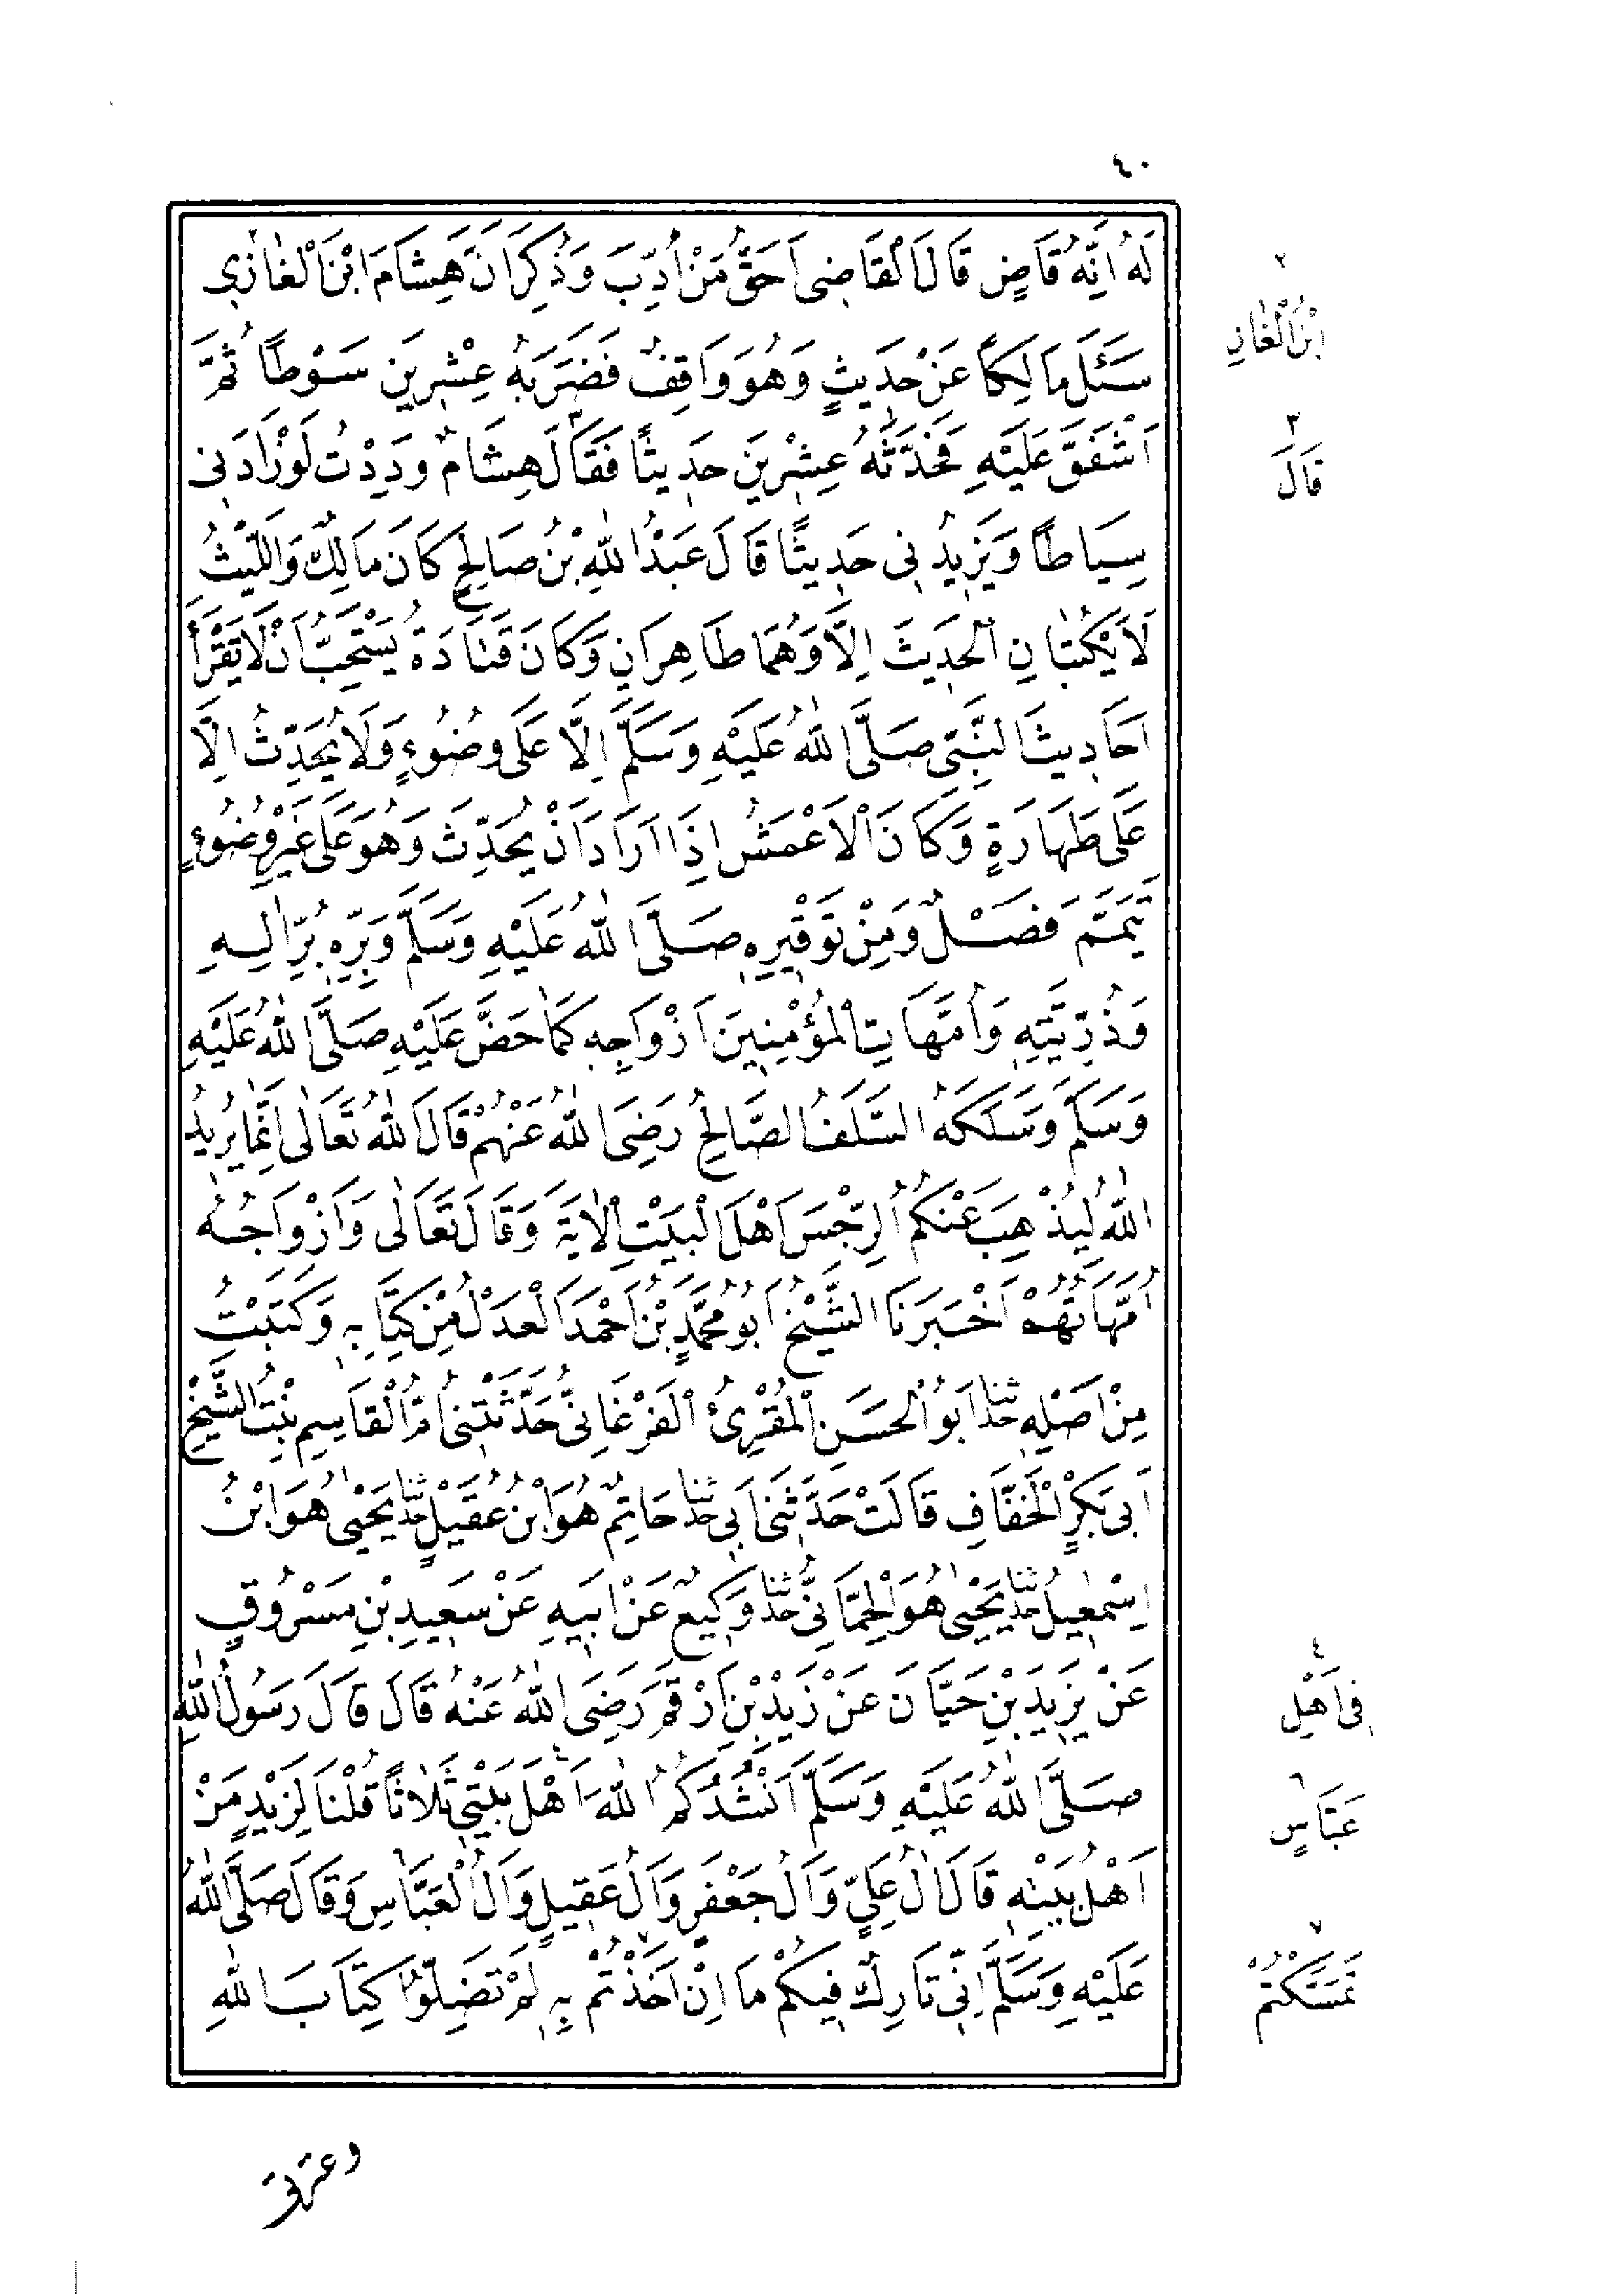 ٤٠
لَهُ اِنَّهُ قَاضٍ قَالَ الْقَاضِى اَحَقُّ مَنْ اُدِّبَ وَذُكِرَ اَنَّ هِشَامَ ابْنَ الْغَازِى
سَئَلَ مَالِكًا عَنْ حَدِيثٍ وَهُوَ وَاقِفٌ فَضَرَبَهُ عِشْرِينَ سَوْطًا ثُمَّ
اَشْفَقَ عَلَيْهِ فَحَدَّثَهُ عِشْرِينَ حَدِيثًا فَقَالَ هِشَامٌ وَدِدْتُ لَوْ زَادَنِى
سِيَاطًا وَيَزِيدُنِى حَدِيثًا قَالَ عَبْدُ اللّٰهِ بْنُ صَالِحٍ كَانَ مَالِكٌ وَاللَّيْثُ
لَا يَكْتُبَانِ الْحَدِيثَ اِلَّا وَهُمَا طَاهِرَانِ وَكَانَ قَتَادَةُ يَسْتَحِبُّ اَنْ لَا يَقْرَأَ
اَحَادِيثَ النَّبِىِّ صَلَّى اللّٰهُ عَلَيْهِ وَسَلَّمَ اِلَّا عَلَى وُضُوءٍ وَلَا يُحَدِّثُ اِلَّا
عَلَى طَهَارَةٍ وَكَانَ الْاَعْمَشُ اِذَا اَرَادَ اَنْ يُحَدِّثَ وَهُوَ عَلَى غَيْرِ وُضُوءٍ
تَيَمَّمَ فَصْلٌ وَمِنْ تَوْقِيرِهِ صَلَّى اللّٰهُ عَلَيْهِ وَسَلَّمَ وَبِرِّهِ بِرُّ اٰلِهِ
وَذُرِّيَّتِهِ وَاُمَّهَاتِ الْمُؤْمِنِينَ اَزْوَاجِهِ كَمَا حَضَّ عَلَيْهِ صَلَّى اللّٰهُ عَلَيْهِ
وَسَلَّمَ وَسَلَكَهُ السَّلَفُ الصَّالِحُ رَضِىَ اللّٰهُ عَنْهُمْ قَالَ اللّٰهُ تَعَالٰى اِنَّمَا يُرِيدُ
اللّٰهُ لِيُذْهِبَ عَنْكُمُ الرِّجْسَ اَهْلَ الْبَيْتِ الْاٰيَةَ وَقَالَ تَعَالٰى وَاَزْوَاجُهُ
اُمَّهَاتُهُمْ اَخْبَرَنَا الشَّيْخُ اَبُو مُحَمَّدِ بْنُ اَحْمَدَ الْعَدْلُ مِنْ كِتَابِهِ وَكَتَبْتُ
مِنْ اَصْلِهِ حَدَّثَنَا اَبُو الْحَسَنِ الْمُقْرِئُ الْفَرْغَانِىُّ حَدَّثَتْنِى اُمُّ الْقَاسِمِ بِنْتُ الشَّيْخِ
اَبِى بَكْرٍ الْخَفَّافِ قَالَتْ حَدَّثَنِى اَبِى حَدَّثَنَا حَاتِمٌ هُوَ ابْنُ عُقَيْلٍ حَدَّثَنَا يَحْيٰى هُوَ ابْنُ
اِسْمٰعِيلَ حَدَّثَنَا يَحْيٰى هُوَ الْحِمَّانِىُّ حَدَّثَنَا وَكِيعٌ عَنْ اَبِيهِ عَنْ سَعِيدِ بْنِ مَسْرُوقٍ
عَنْ يَزِيدَ بْنِ حَيَّانَ عَنْ زَيْدِ بْنِ اَرْقَمَ رَضِىَ اللّٰهُ عَنْهُ قَالَ قَالَ رَسُولُ اللّٰهِ
صَلَّى اللّٰهُ عَلَيْهِ وَسَلَّمَ اَنْشُدُكُمُ اللّٰهَ اَهْلَ بَيْتِى ثَلَاثًا قُلْنَا لِزَيْدٍ مَنْ
اَهْلُ بَيْتِهِ قَالَ اٰلُ عَلِىٍّ وَاٰلُ جَعْفَرٍ وَاٰلُ عَقِيلٍ وَاٰلُ الْعَبَّاسِ وَقَالَ صَلَّى اللّٰهُ
عَلَيْهِ وَسَلَّمَ اِنِّى تَارِكٌ فِيكُمْ مَا اِنْ اَخَذْتُمْ بِهِ لَمْ تَضِلُّوا كِتَابَ اللّٰهِ
وعترتى
٢
ابْنُ الْغَازِ
٣
قَالَ
٤
فِى اَهْلِ
٦
عَبَّاسٍ
٧
تَمَسَّكْتُمْ